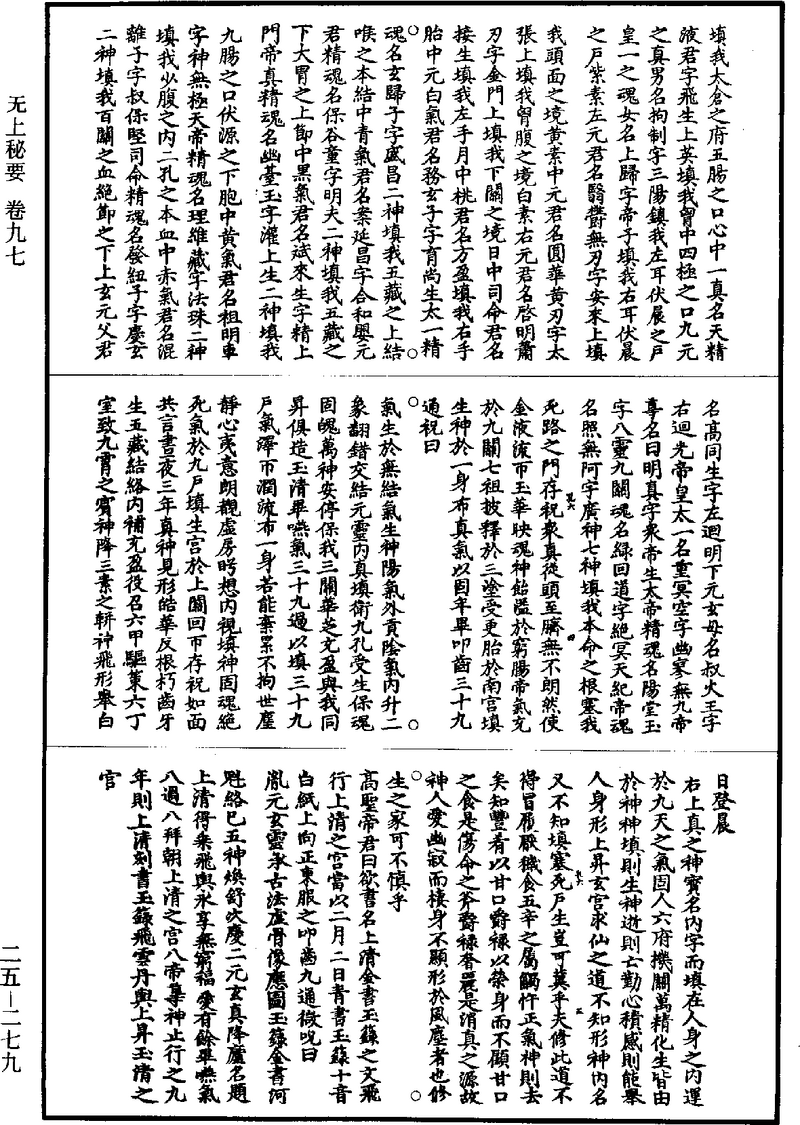 填我太倉之府五腸之口心中一真名天精
液君字飛生上英填我胷中四極之口九元
之真男名拘制字三陽鎮我左耳伏晨之戶
皇一之魂女名上歸字帝子填我右耳伏晨
之戶紫素左元君名翳鬱無刃字安來上填
我頭面之境黃素中元君名圓華黃刃字太
張上填我胷腹之境白素右元君名啓明蕭
刃字金門上填我下關之境日中司命君名
接生填我左手月中桃君名方盈填我右手
胎中元白氣君名務玄子字育尚生太一精
魂名玄歸子字盛昌二神填我五藏之上結
喉之本結中青氣君名案延昌字合和嬰元
君精魂名保谷童字明夫二神填我五藏之
下大胃之上節中黑氣君名斌來生字精上
門帝真精魂名幽臺玉字灌上生二神填我
九腸之口伏源之下胞中黃氣君名祖明車
字神無極天帝精魂名理維藏字法珠二神
填我少腹之內二孔之本血中赤氣君名混
離子字叔保堅司命精魂名發紐子字慶玄
二神填我百關之血絕節之下上玄元父君
名高同生字左迴明下元玄母名叔火王字
右迴光帝皇太一名重冥空字幽寥無九帝
尊名日明真字衆帝生太帝精魂名陽堂玉
字八靈九關魂名綠回道字絕冥天紀帝魂
名照無阿字廣神七神填我本命之根塞我
死路之門存祝衆真從頭至臍無不朗然使
金液流帀玉華映魂神飴溢於窮腸帝氣充
於九關七祖披釋於三塗受更胎於南宮填
生神於一身布真氣以固年畢叩齒三十九
通祝曰
氣生於無結氣生神陽氣外賁陰氣內升二
象翻錯交結元靈內真填衛九孔受生保魂
固魄萬神安停保我三關華芝充盈與我同
昇俱造玉清畢嚥氣三十九過以填三十九
戶氣澤帀潤流布一身若能棄累不拘世塵
靜心夷意朗觀虛房眄想內視填神固魂絕
死氣於九戶填生宮於上關回帀存祝如面
共言晝夜三年真神見形皓華反根朽齒牙
生五藏結絡內補充盈役召六甲驅策六丁
室致九霄之賓神降三素之軿神飛形舉白
日登晨
右上真之神寶名內字而填在人身之內運
於九天之氣固人六府機關萬精化生皆由
於神神填則生神逝則亡勤心積感則能舉
人身形上昇玄宮求仙之道不知形神內名
又不知填塞死戶生豈可冀乎夫修此道不
得冒履厭穢食五辛之屬觸忤正氣神則去
矣知豐肴以甘口爵祿以榮身而不顧甘口
之食是傷命之斧爵祿奢麗是消真之源故
神人愛幽寂而棲身不顯形於風塵者也修
生之家可不慎乎
高聖帝君曰欲書名上清金書玉籙之文飛
行上清之宮當以二月二日青書玉籙十音
白紙上向正東服之叩齒九通微咒曰
胤元玄靈永古法虛骨像應圖玉籙金書河
魁絡巳五神煥舒次慶二元玄真降廬名題
上清得乘飛輿永享無窮福愛有餘畢嚥氣
八過八拜朝上清之宮八帝集神止行之九
年則上清刻書玉籙飛雲丹輿上昇玉清之
宮
无上秘要 卷九七
二五—二七九